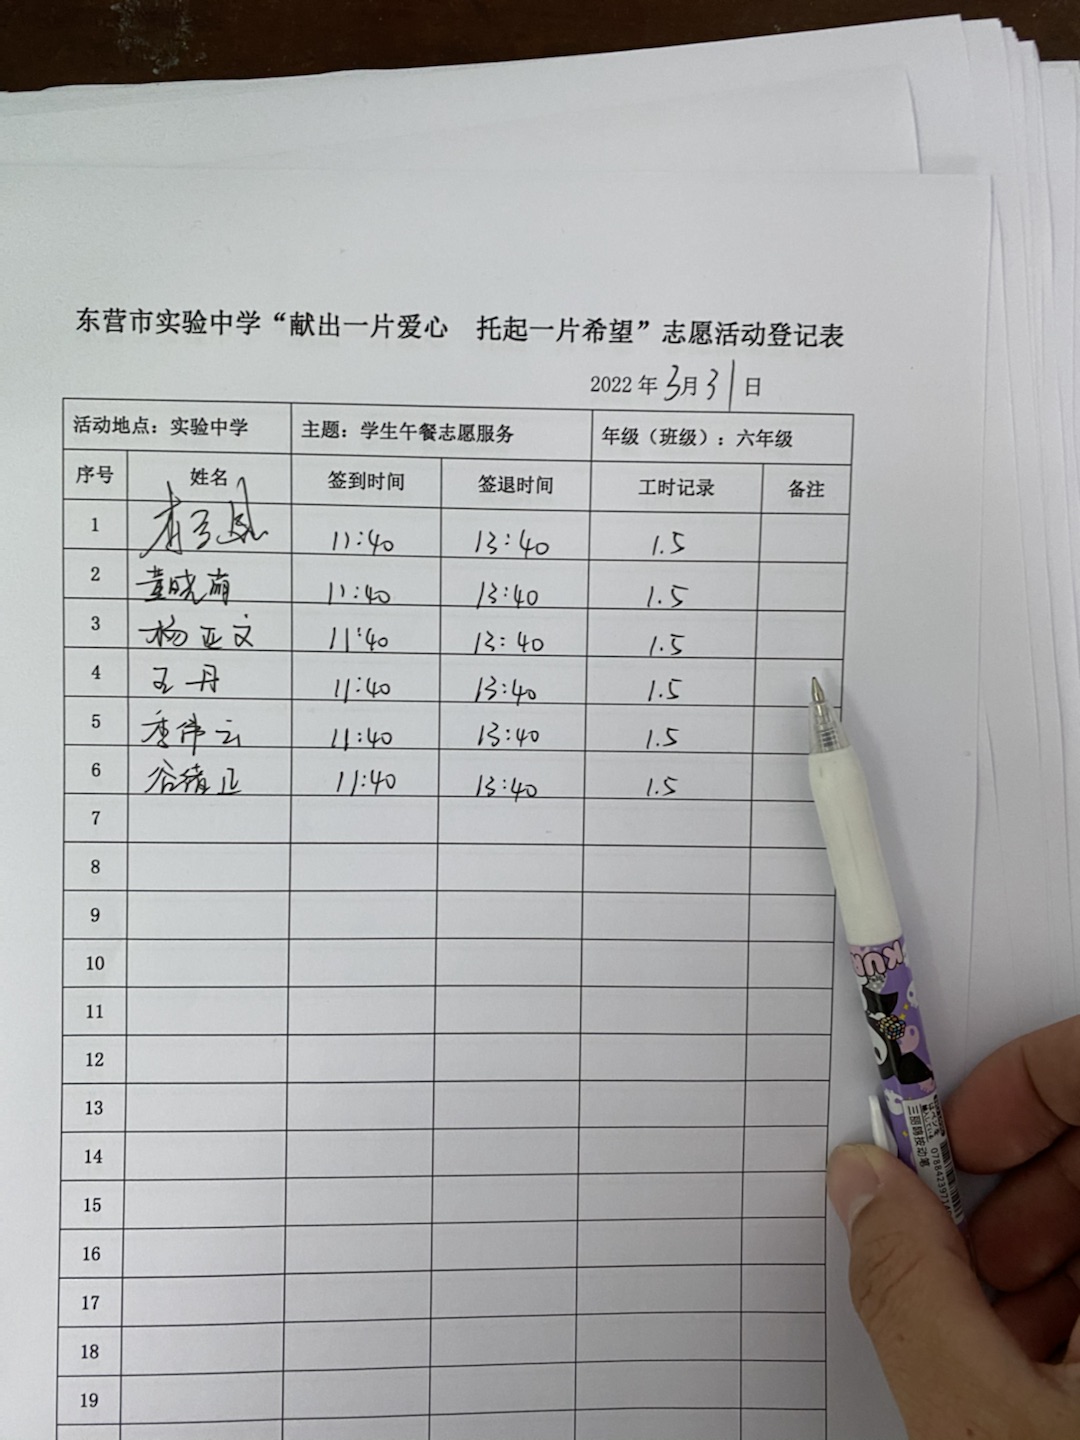 东营市实验中学“献出一片爱心 托起一片希望”志愿活动登记表
2022 年 3月 31 日
活动地点：实验中学 主题：学生午餐志愿服务 年级（班级）：六年级
序号 姓名 签到时间 签退时间 工时记录 备注
1 11:40 13:40 1.5
2 黄晓萌 11:40 13:40 1.5
3 杨亚文 11:40 13:40 1.5
4 王丹 11:40 13:40 1.5
5 李伟云 11:40 13:40 1.5
6 11:40 13:40 1.5
7
8
9
10
11
12
13
14
15
16
17
18
19
KU
三丽鸥按动笔